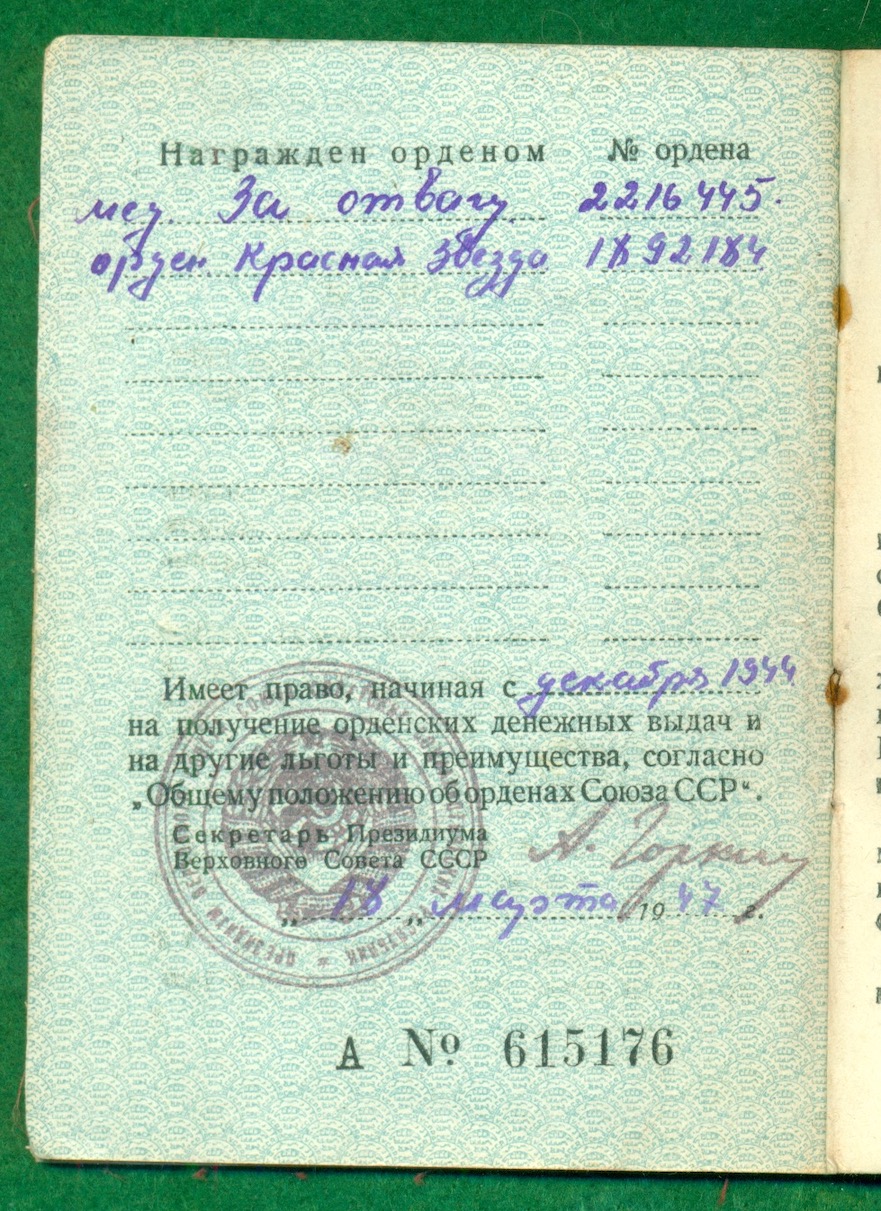 Награжден орденом № ордена
мед. За отвагу 2216445.
орден Красная Звезда 1892184
Имеет право, начиная с декабря 1944
на получение орденских денежных выдач и
на другие льготы и преимущества, согласно
„Общему положению об орденах Союза ССР“.
Секретарь Президиума
Верховного Совета СССР А. Горкин
„18„ марта 1947 г.
А № 615176